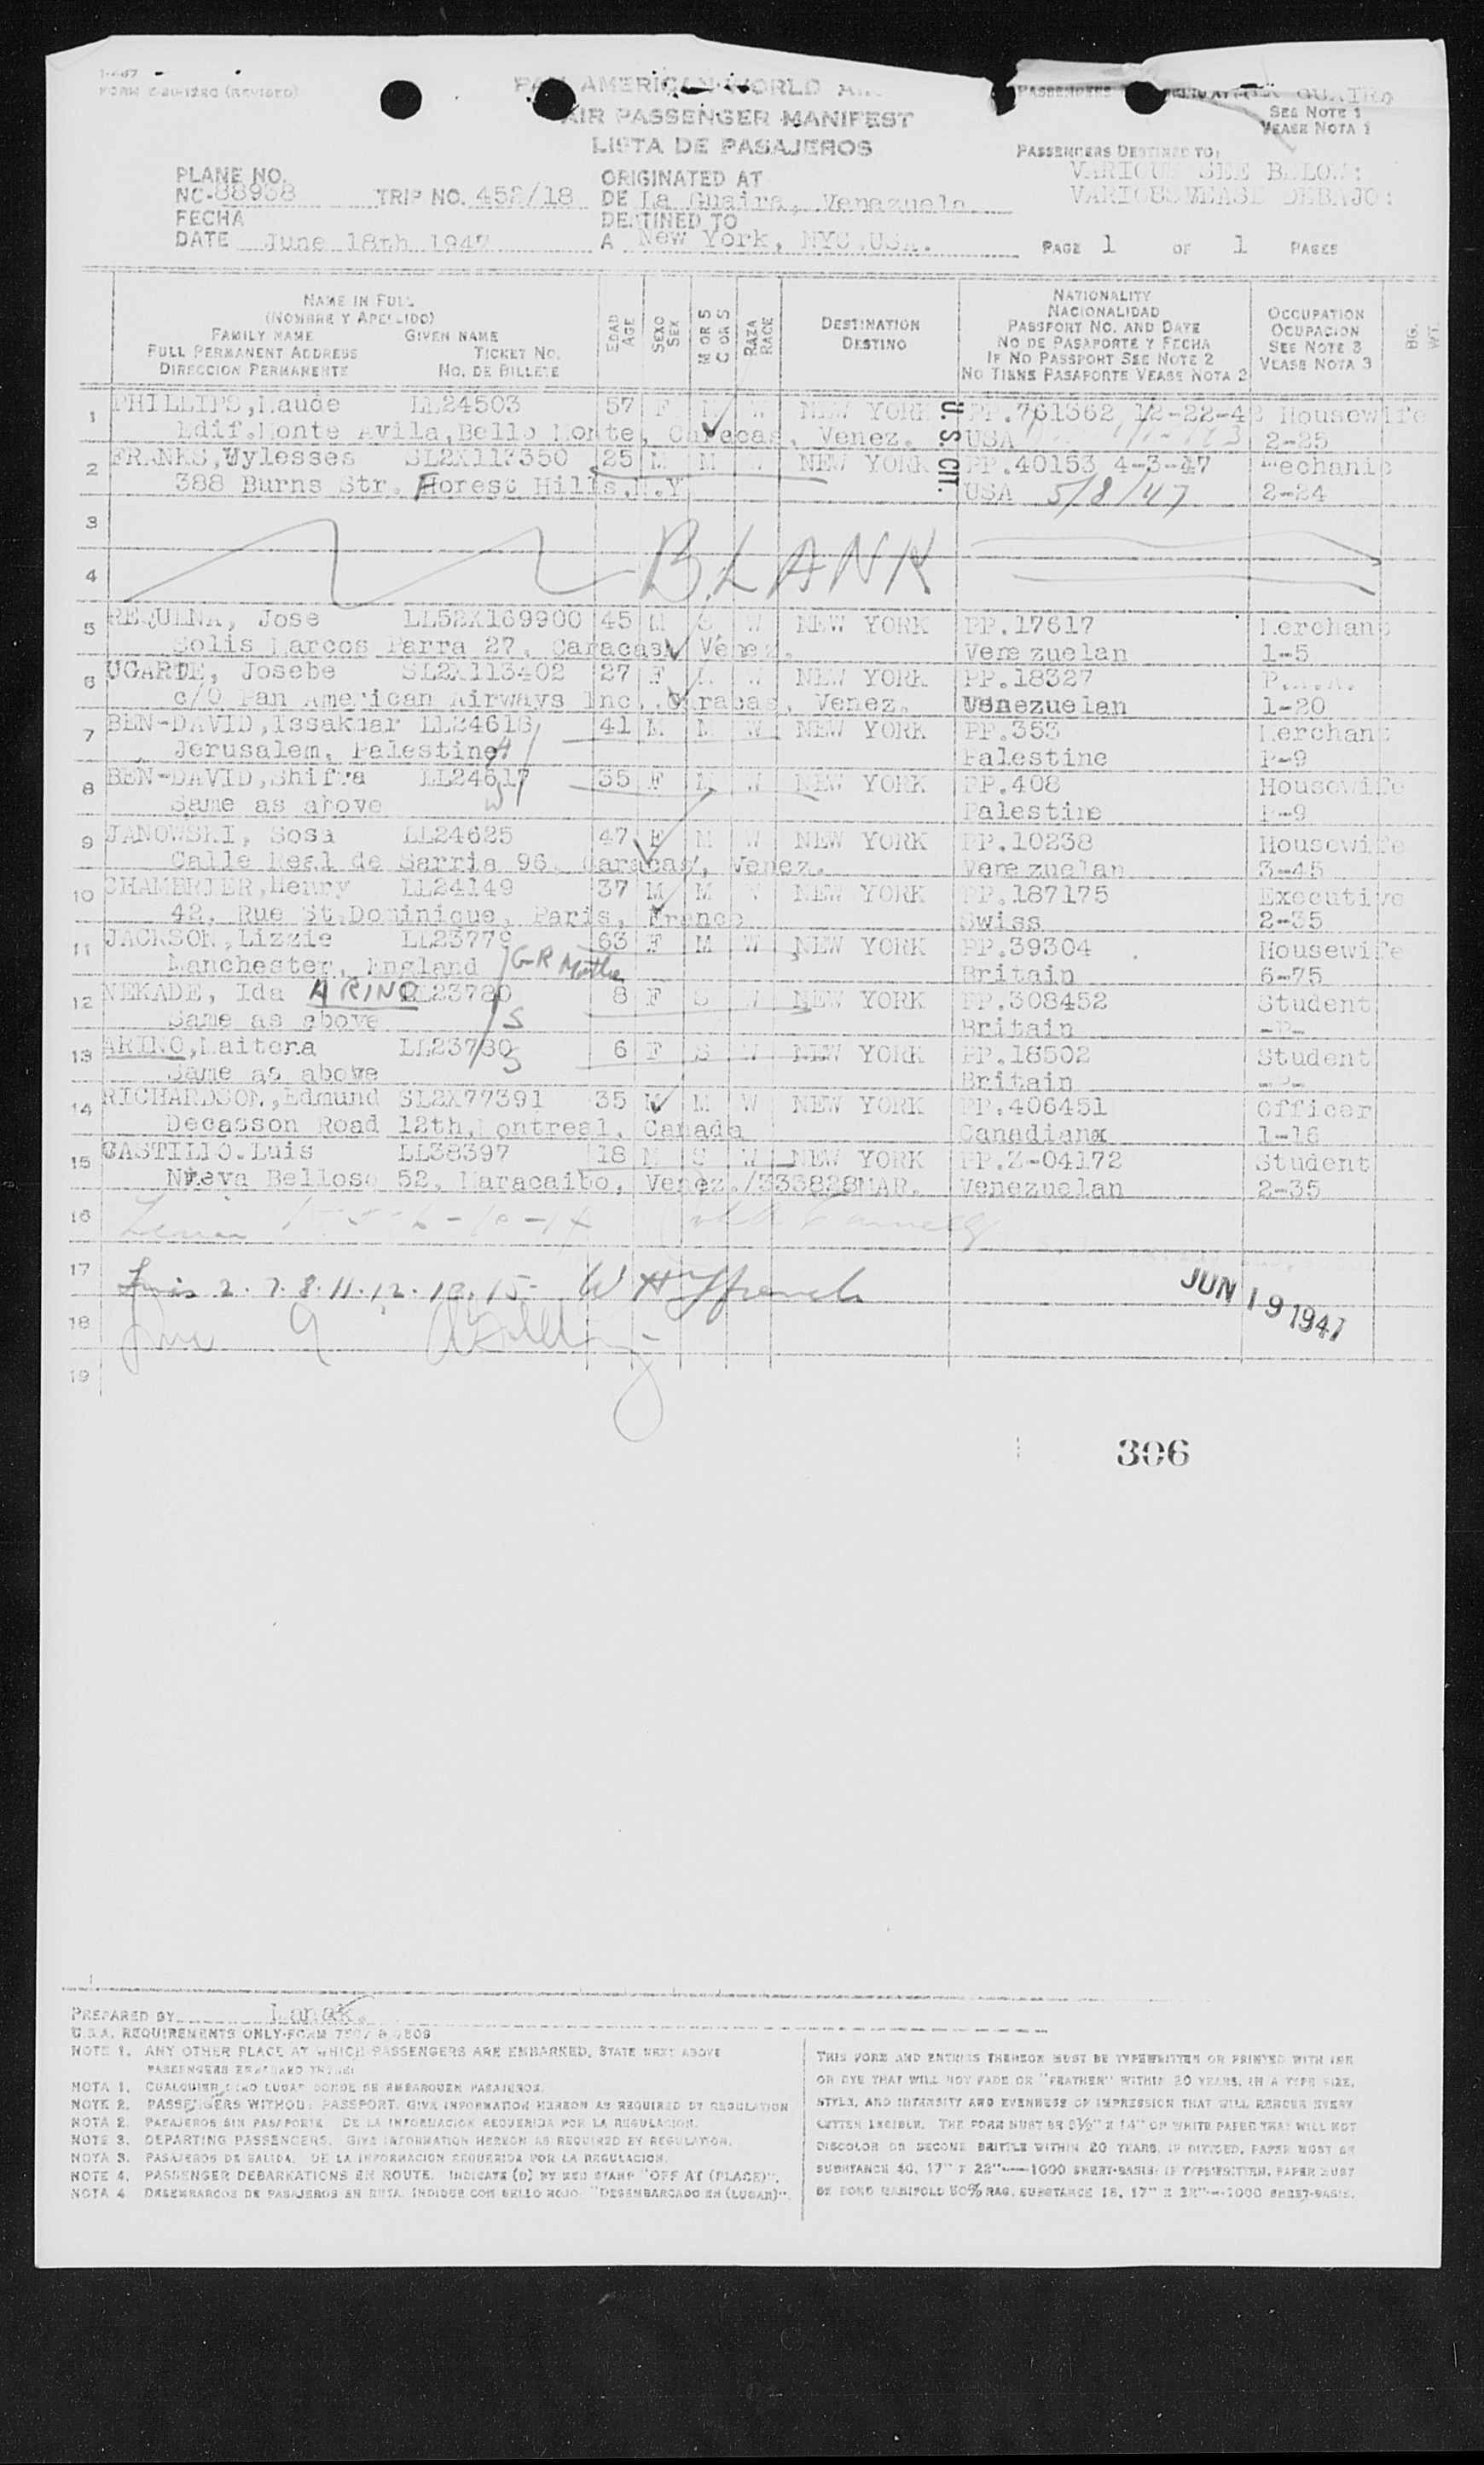 I-467
FORM (REVISED)
PAN AMERICAN WORLD
AIR PASSENGER MANIFEST
LISTA DE PASAJEROS
PASSENGERS
SEE NOTE 1
VEASE NOTA 1
PASSENGERS DESTINED TO:
VARIOUS SEE BELOW:
VARIOES VEASE DEBAJO:
PLANE NO.
NC-88938 TRIP NO. 452/18
FECHA
DATE June 18th 1947
ORIGINATED AT
DE La Guaira, Venezuela
DESTINED TO
A New York, NYC.USA.
PAGE 1 OF 1 PAGES
NAME IN FULL
(NOMBRE Y APELLIDO)
FAMILY NAME GIVEN NAME
FULL PERMANENT ADDRESS TICKET NO.
DIRECCION PERMANENTE NO. DE BILLETE
EDAD AGE
SEXO SEX
M OR S C OR S
RAZA RACE
DESTINATION
DESTINO
NATIONALITY
NACIONALIDAD
PASSPORT NO. AND DATE
NO DE PASAPORTE Y FECHA
IF NO PASSPORT SEE NOTE 2
NO TIENE PASAPORTE VEASE NOTA 2
OCCUPATION
OCUPACION
SEE NOTE 3
VEASE NOTA 3
BG. WT.
1 PHILLIPS, Maude LL24503 57 F M W NEW YORK PP.761362 12-22-42 Housewife
Edif.Monte Avila,Bello Monte, Caracas, Venez. USA 2-25
U. S. CIT.
2 FRANKS,Wylesses SL2X113350 25 M M W NEW YORK PP.40153 4-3-47 Mechanic
388 Burns Str. Forest Hills,N.Y USA 5/8/47 2-24
3
4 BLANK
5 REQUENA, Jose LL52X169900 45 M S W NEW YORK PP.17617 Merchant
Solis Marcos Parra 27, Caracas, Venez. Venezuelan 1-5
6 UGARTE, Josebe SL2X113402 27 F M W NEW YORK PP.18327 P.A.A.
c/O Pan American Airways Inc., Caracas, Venez. Venezuelan 1-20
7 BEN-DAVID,Issakhar LL24618 41 M M W NEW YORK PP.353 Merchant
Jerusalem, Palestine H Palestine P-9
8 BEN-DAVID,Shifra LL24617 35 F M W NEW YORK PP.408 Housewife
Same as above W Palestine P-9
9 JANOWSKI, Sosa LL24625 47 F M W NEW YORK PP.10238 Housewife
Calle Real de Sarria 96, Caracas, Venez. Venezuelan 3-45
10 CHAMBRIER,Henry LL24149 37 M M W NEW YORK PP.187175 Executive
42, Rue St.Dominique, Paris, France Swiss 2-35
11 JACKSON,Lizzie LL23779 63 F M W NEW YORK PP.39304 Housewife
Manchester, England GR Mother Britain 6-75
12 NEKADE, Ida ARINO LL23780 8 F S W NEW YORK PP.308452 Student
Same as above S Britain -P-
13 ARINO,Maitena LL23780 6 F S W NEW YORK PP.18502 Student
Same as above S Britain -P-
14 RICHARDSON,Edmund SL2X77391 35 M M W NEW YORK PP.406451 Officer
Decasson Road 12th, Montreal, Canada Canadian 1-16
15 CASTILLO.Luis LL38397 18 M S W NEW YORK PP.Z-04172 Student
Nueva Belloso 52, Maracaibo, Venez./333828MAR. Venezuelan 2-35
16
17 2.7.8.11.12.13.15- W H
JUN 19 1947
18 9
19
306
PREPARED BY
U.S.A. REQUIREMENTS ONLY-FORM 7507 & 7509
NOTE 1. ANY OTHER PLACE AT WHICH PASSENGERS ARE EMBARKED, STATE NEXT ABOVE
PASSENGERS EMBARKED THERE.
NOTA 1. CUALQUIER OTRO LUGAR DONDE SE EMBARQUEN PASAJEROS.
NOTE 2. PASSENGERS WITHOUT PASSPORT. GIVE INFORMATION HEREON AS REQUIRED BY REGULATION
NOTA 2. PASAJEROS SIN PASAPORTE DE LA INFORMACION REQUERIDA POR LA REGULACION.
NOTE 3. DEPARTING PASSENGERS. GIVE INFORMATION HEREON AS REQUIRED BY REGULATION.
NOTA 3. PASAJEROS DE SALIDA. DE LA INFORMACION REQUERIDA POR LA REGULACION.
NOTE 4. PASSENGER DEBARKATIONS EN ROUTE. INDICATE (D) BY RED STAMP "OFF AT (PLACE)".
NOTA 4 DESEMBARCOS DE PASAJEROS EN RUTA. INDIQUE CON SELLO ROJO. "DESEMBARCADO EN (LUGAR)".
THIS FORM AND ENTRIES THEREON MUST BE TYPEWRITTEN OR PRINTED WITH INK
OR DYE THAT WILL NOT FADE OR "FEATHER" WITHIN 20 YEARS. IN A TYPE SIZE,
STYLE, AND INTENSITY AND EVENNESS OF IMPRESSION THAT WILL RENDER EVERY
LETTER LEGIBLE. THE FORM MUST BE 8½" X 14" ON WHITE PAPER THAT WILL NOT
DISCOLOR OR BECOME BRITTLE WITHIN 20 YEARS. IF DITTOED, PAPER MUST BE
SUBSTANCE 40. 17" X 22"—1000 SHEET-BASIS: IF TYPEWRITTEN, PAPER MUST
BE BOND MANIFOLD 50% RAG, SUBSTANCE 16, 17" X 22"—1000 SHEET-BASIS.